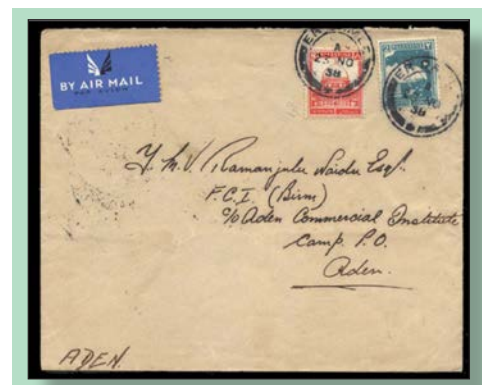 BY AIR MAIL
PAR AVION
A
23 NO
38
Y. M. V. Ramanjulu Naidu Esqr.
F.C.I. (Birm)
c/o Aden Commercial Institute
Camp. P.O.
Aden.
ADEN.